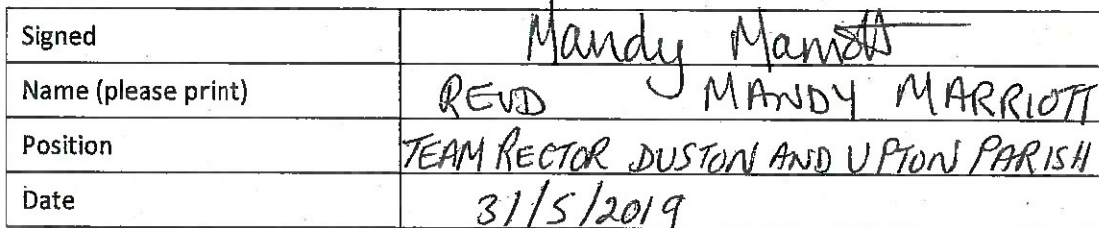 Signed Mandy Marriott
Name (please print) REVD MANDY MARRIOTT
Position TEAM RECTOR DUSTON AND UPTON PARISH
Date 31/5/2019